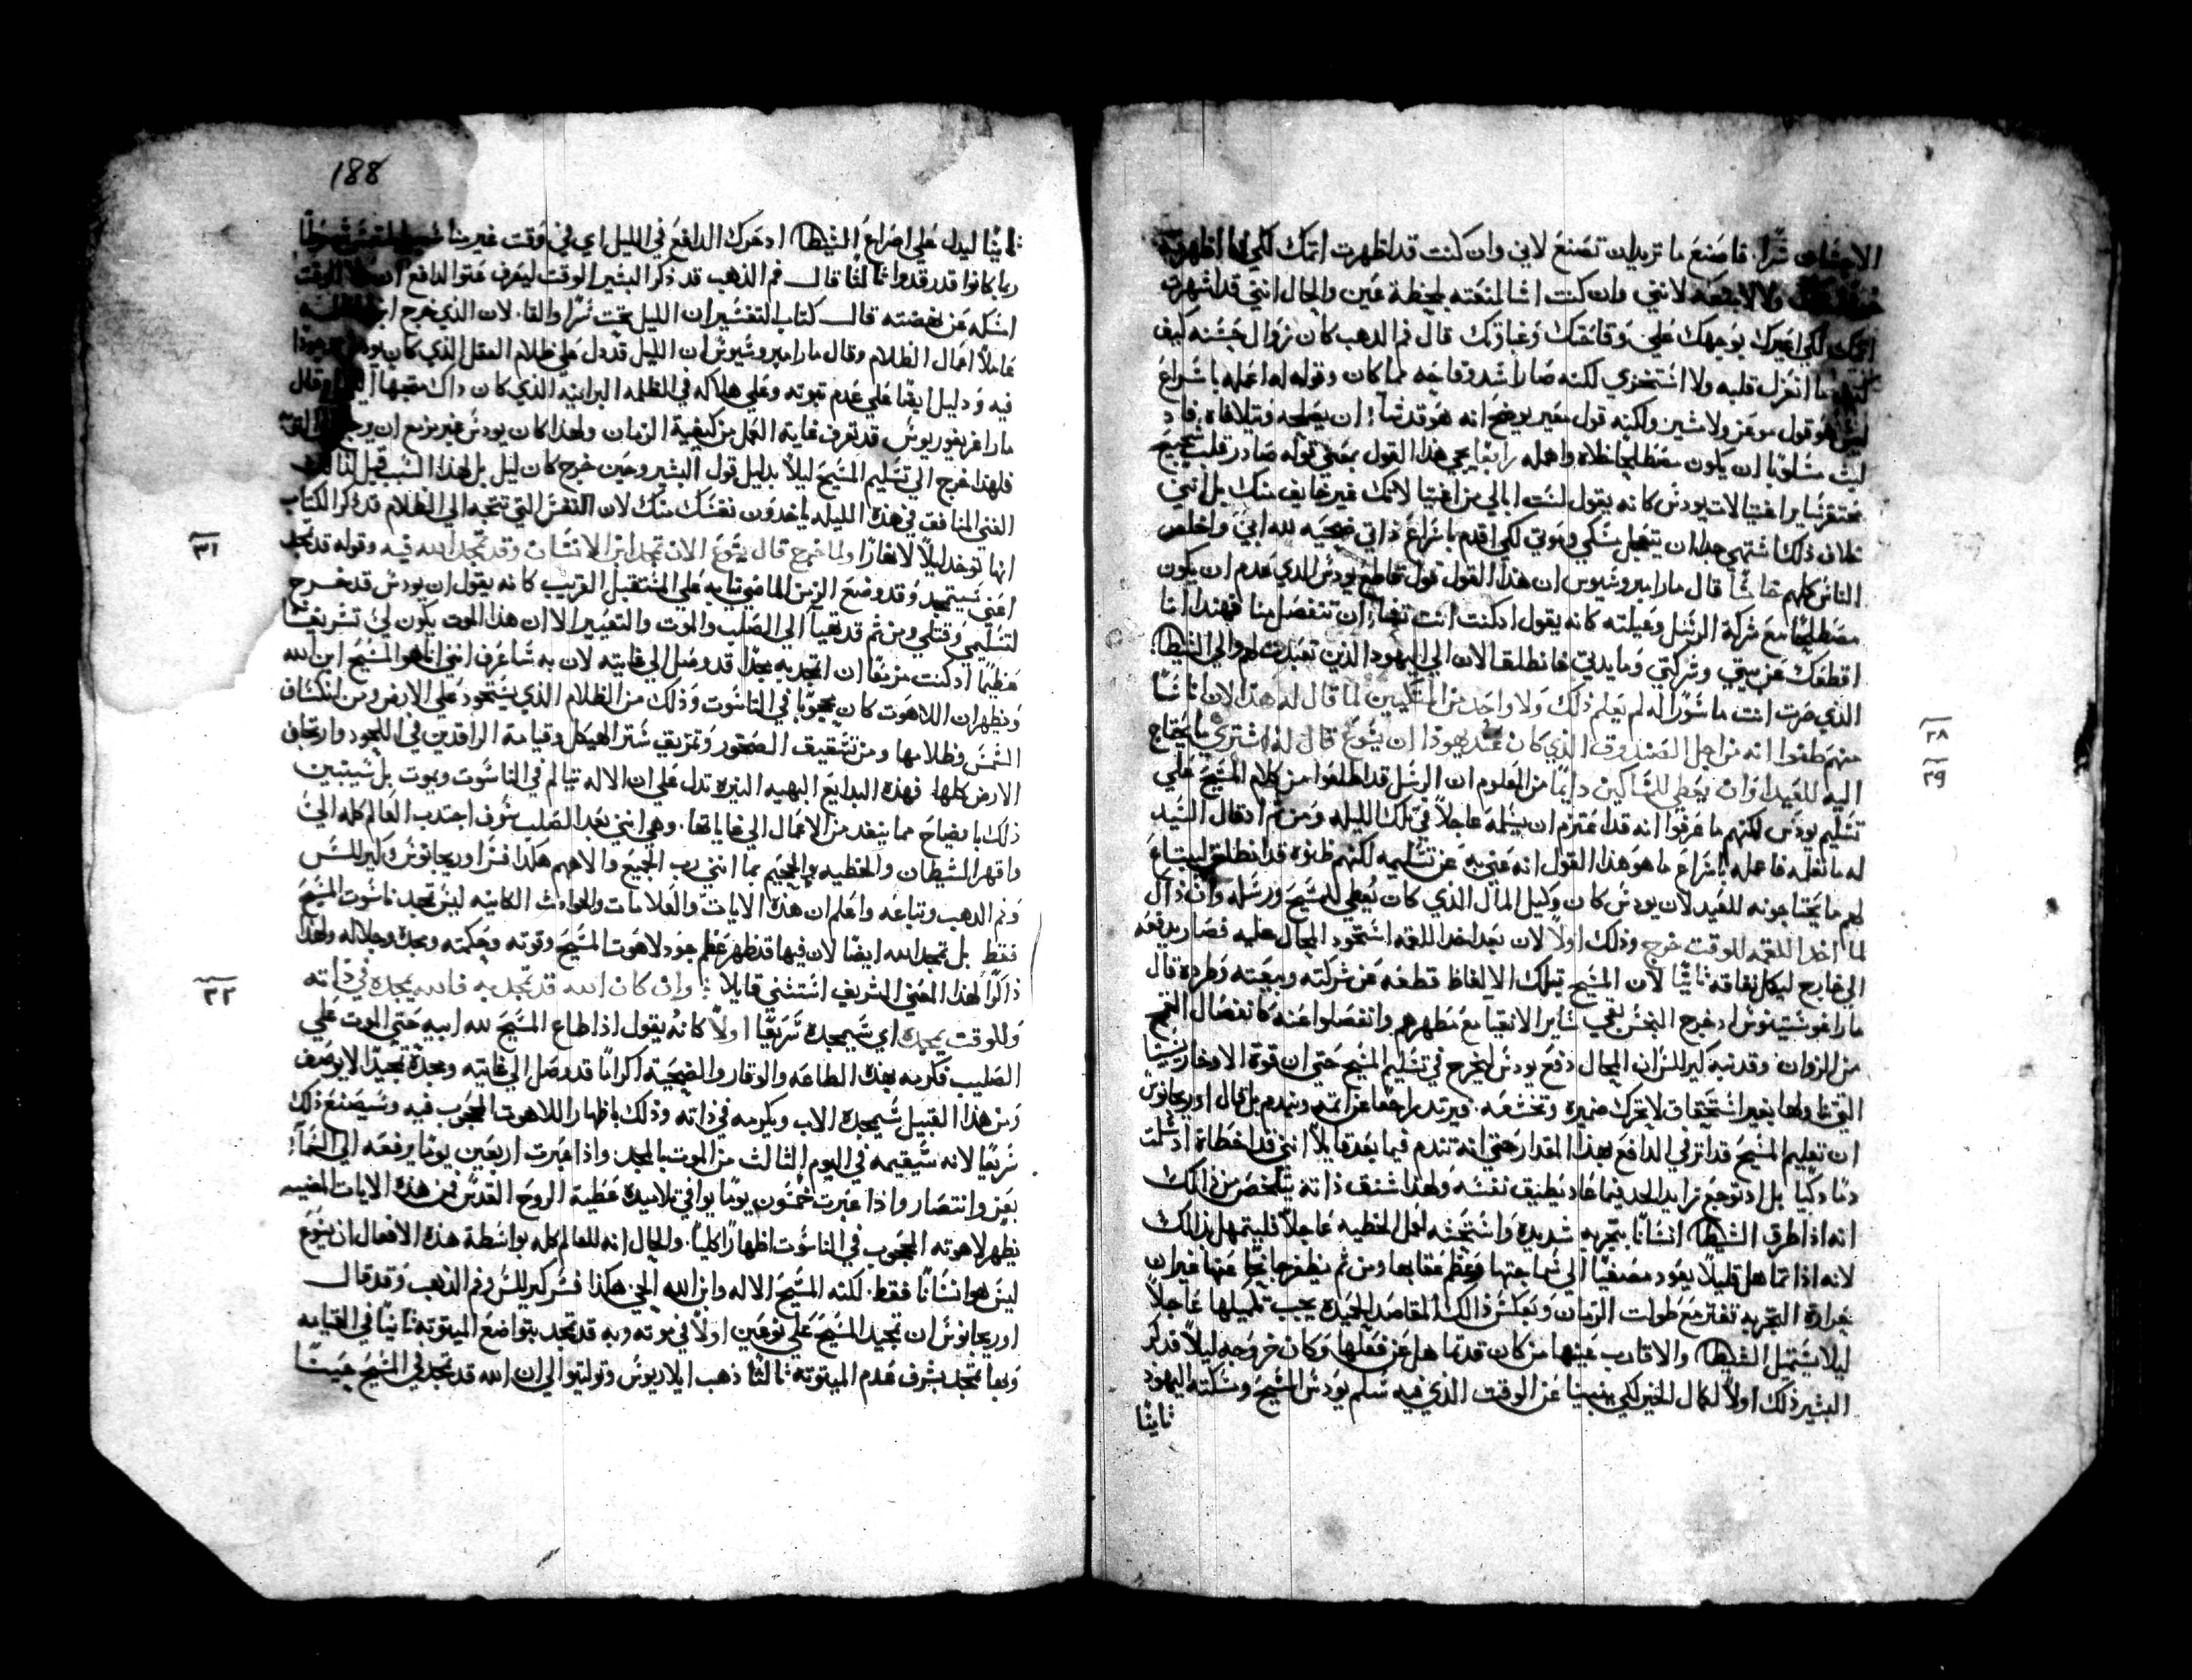 فاصنع ما تريد ان تصنع لاني وان كنت قد اظهرت اتمك لكي انا اظهرته
ولا لادفعه لانني وان كنت اشا لمنعته بلحظة عين والحال انني قد اشهرت
لكي اعيرك بوجهك علي وقاحتك وغباوتك قال فم الدهب كان زوال خبثه كيف
انغزل قلبه ولا استخزي لكنه صار اشد وقاحه مما كان وقوله له اعمله باشراع
ليس هو قول موعز ولا مشين ولكنه قول معير يوضح انه هو قد شا ان يصلحه ويتلافاه فاد
لبث مسلوبا ان يكون مصطلحا خلاه واهمله رابعا يجي هذا القول بمعني قوله صادر قلب شجيع
محتقر ساير اغتيالات يودس كانه يقول لست ابالي من اغتيالاتك غير خايف منك بل انني
خلاف ذلك اشتهي جدا ان يتعجل مسكي وموتي لكي اقدم باشراع ذاتي ضحيه لله ابي واخلص
الناس كلهم خامسا قال مار امبروسيوس ان هذا القول قول قاطع يودس الدي عدم ان يكون
مصطلحا مع شركة الرسل وعيلته كانه يقول اد كنت انت تشا ان تنفصل منا فهندا انا
اقطعك عن بيتي وشركتي ومايدتي فانطلق الان الي اليهود الذين تعبدت لهم والي الشيطان
الذي صرت انت ماسورا له لم يعلم ذلك ولا واحد من المتكيين لما قال له هذا لان اناسا
منهم ظنوا انه من اجل الصندوق الذي كان عند يهوذا ان يشوع قال له اشتري ما يحتاج
اليه للعيد او ان يعطي للمساكين دايما من المعلوم ان الرسل قد اطلعوا من كلام المسيح علي
تسليم يودس لكنهم ما عرفوا انه قد اعتزم ان يسلمه عاجلا في تلك الليله ومن ثم اد قال السيد
له ما تعمله فاعمله باشراع ما هو هذا القول انه عني به عن تسليمه لكنهم ظنوه قد انطلق ليبتاع
لهم ما يحتاجونه للعيد لان يودس كان وكيل المال الذي كان يعطي للمسيح ورسله وان ذاك
لما اخد اللقمه للوقت خرج وذلك اولا لان بعد اخد اللقمه استحود المحال عليه فصار يدفعه
الي خارج ليكمل نفاقه ثانيا لان المسيح بتلك الالفاظ قطعه من شركته وبيعته وطرده قال
مار اغوسطينوس اد خرج النجس بقي ساير الانقيا مع مطهرهم وانفصلوا عنه كانفصال القمح
من الزوان وقد نبه كيرللس ان المحال دفع يودس ليخرج في تسليم المسيح حتي ان قوة الاوخارستيا
التي تناولها بغير استحقاق لا تحرك ضميره وتخشعه فيرتد راجعا عن اتمه ويندم بل قال اوريجانوس
ان تعليم المسيح قد اثر في الدافع بهذا المقدار حتي انه تندم فيما بعد قايلا انني قد اخطاة اد سلمت
دما دكيا بل اد توجع زايد الحد فيما عاد يطيق نفسه ولهذا شنق ذاته يتلخص من ذالك
انه اذا طرق الشيطان انسانا بتجربه شديده واستحثه لعمل الخطيه عاجلا فليتمهل بذالك
لانه اذا تماهل قليلا يعود مصغيا الي سماجتها وعظم عقابها ومن ثم يظفر ناجيا منها فيران
حرارة التجربه تفتر مع طولت الزمان وبعكس ذالك المقاصد الحميده يجب تكميلها عاجلا
ليلا يستميل الشيطان والاقارب عنها من كان قد تماهل عن فعلها وكان خروجه ليلا قد ذكر
البشير ذلك اولا لكمال الخبر لكي ينبينا عن الوقت الذي فيه سلم يودس المسيح ومسكته اليهود
ثانيا
٢٨
٢٩
188
ثانيا ليدل علي اصراع الشيطان اد حرك الدافع في الليل اي في وقت غير مناسب
ربما كانوا قد رقدوا ثالثا قال فم الذهب قد ذكر البشير الوقت ليعرف عتو الدافع ان
امسكه عن نهضته قال كتاب التفسير ان الليل يخت سرا والقا لان الذي خرج
عاملا اعمال الظلام وقال مار امبروسيوس ان الليل قد دل علي ظلام العقل الذي كان
فيه ودليل ايضا علي عدم توبته وعلي هلاكه في الظلمه البرانيه الذي كان داك متجها
مار اغريغوريوس قد تعرف غاية العمل من كيفية الزمان ولهذا كان يودس غير مزمع ان يرجع
فلهذا خرج الي تسليم المسيح ليلا بدليل قول البشير وحين خرج كان ليل بل لهذا السبب قيل لذالك
الغني المنافق في هذه الليله ياخدون نفسك منك لان النفس التي تتجه الي الظلام قد ذكر الكتاب
انها توخد ليلا لا نهارا ولما خرج قال يشوع الان تمجد ابن الانسان وقد تمجد الله فيه وقوله قد تمجد
اعني سيتمجد وقد وضع الزمن الماضي نيابه علي المستقبل القريب كانه يقول ان يودس قد خرج
لتسلمي وقتلي ومن ثم قد تهيا الي الصلب والموت والتعيير الا ان هذا الموت يكون لي تشريفا
عظيما اد كنت مزمعا ان اتمجد به مجدا قد وصل الي غايته لان به ساعرف انني انا هو المسيح ابن الله
ويظهر ان اللاهوت كان محجوبا في الناسوت وذلك من الظلام الذي يستحود علي الارض ومن انكساف
الشمس وظلامها ومن تشقيف الصخور وتمزيق ستر الهيكل وقيامة الراقدين في اللحود وارتجاف
الارض كلها فهذه البدايع البهيه النيره تدل علي ان الاله تيالم في الناسوت ويموت بل سيتبين
ذلك بايضاح مما ينفد من الاعمال الي غاياتها وهي انني بعد الصلب سوف اجتدب العالم كله الي
واقهر الشيطان والخطيه والجحيم بما انني رب الجميع والاههم هكذا فسر اوريجانوس وكيرللس
وفم الدهب وتباعه واعلم ان هذه الايات والعلامات والحوادث الكاينه ليس تمجد ناسوت المسيح
فقط بل تمجد الله ايضا لان فيها قد ظهر عظم جود لاهوت المسيح وقوته وحكمته ومجده وجلاله ولهذا
ذاكرا لهذا المعني الشريف استثني قايلا وان كان الله قد تمجد به فالله يمجده في ذاته
وللوقت يمجده اي سيمجده سريعا اولا كانه يقول اذا طاع المسيح لله ابيه حتي الموت علي
الصليب فكرمه بهذه الطاعه والوقار والضحية اكراما قد وصل الي غايته ومجده تمجيدا لا يوصف
ومن هذا القبيل سيمجده الاب ويكرمه في ذاته وذلك باظهار اللاهوت المحجوب فيه وسيصنع ذلك
سريعا لانه سيقيمه في اليوم الثالث من الموت بالمجد واذا عبرت اربعين يوما يرفعه الي السما
بعز وانتصار واذا عبرت خمسون يوما يوافي تلاميده عطية الروح القدس فمن هذه الايات المضيه
يظهر لاهوته المحجوب في الناسوت اظهارا كليا والحال انه للعالم كله بواسطة هذه الافعال ان يشوع
ليس هو انسانا فقط لكنه المسيح الاله وابن الله الحي هكذا فسر كيرللس وفم الذهب وقد قال
اوريجانوس ان تمجيد المسيح علي نوعين اولا في موته وبه قد تمجد بتواضع الميتوته ثانيا في القيامه
وبها تمجد بشرف عدم الميتوته ثالثا ذهب ايلاريوس وتوليتو الي ان الله قد تمجد في المسيح حينما
٣١
٣٢